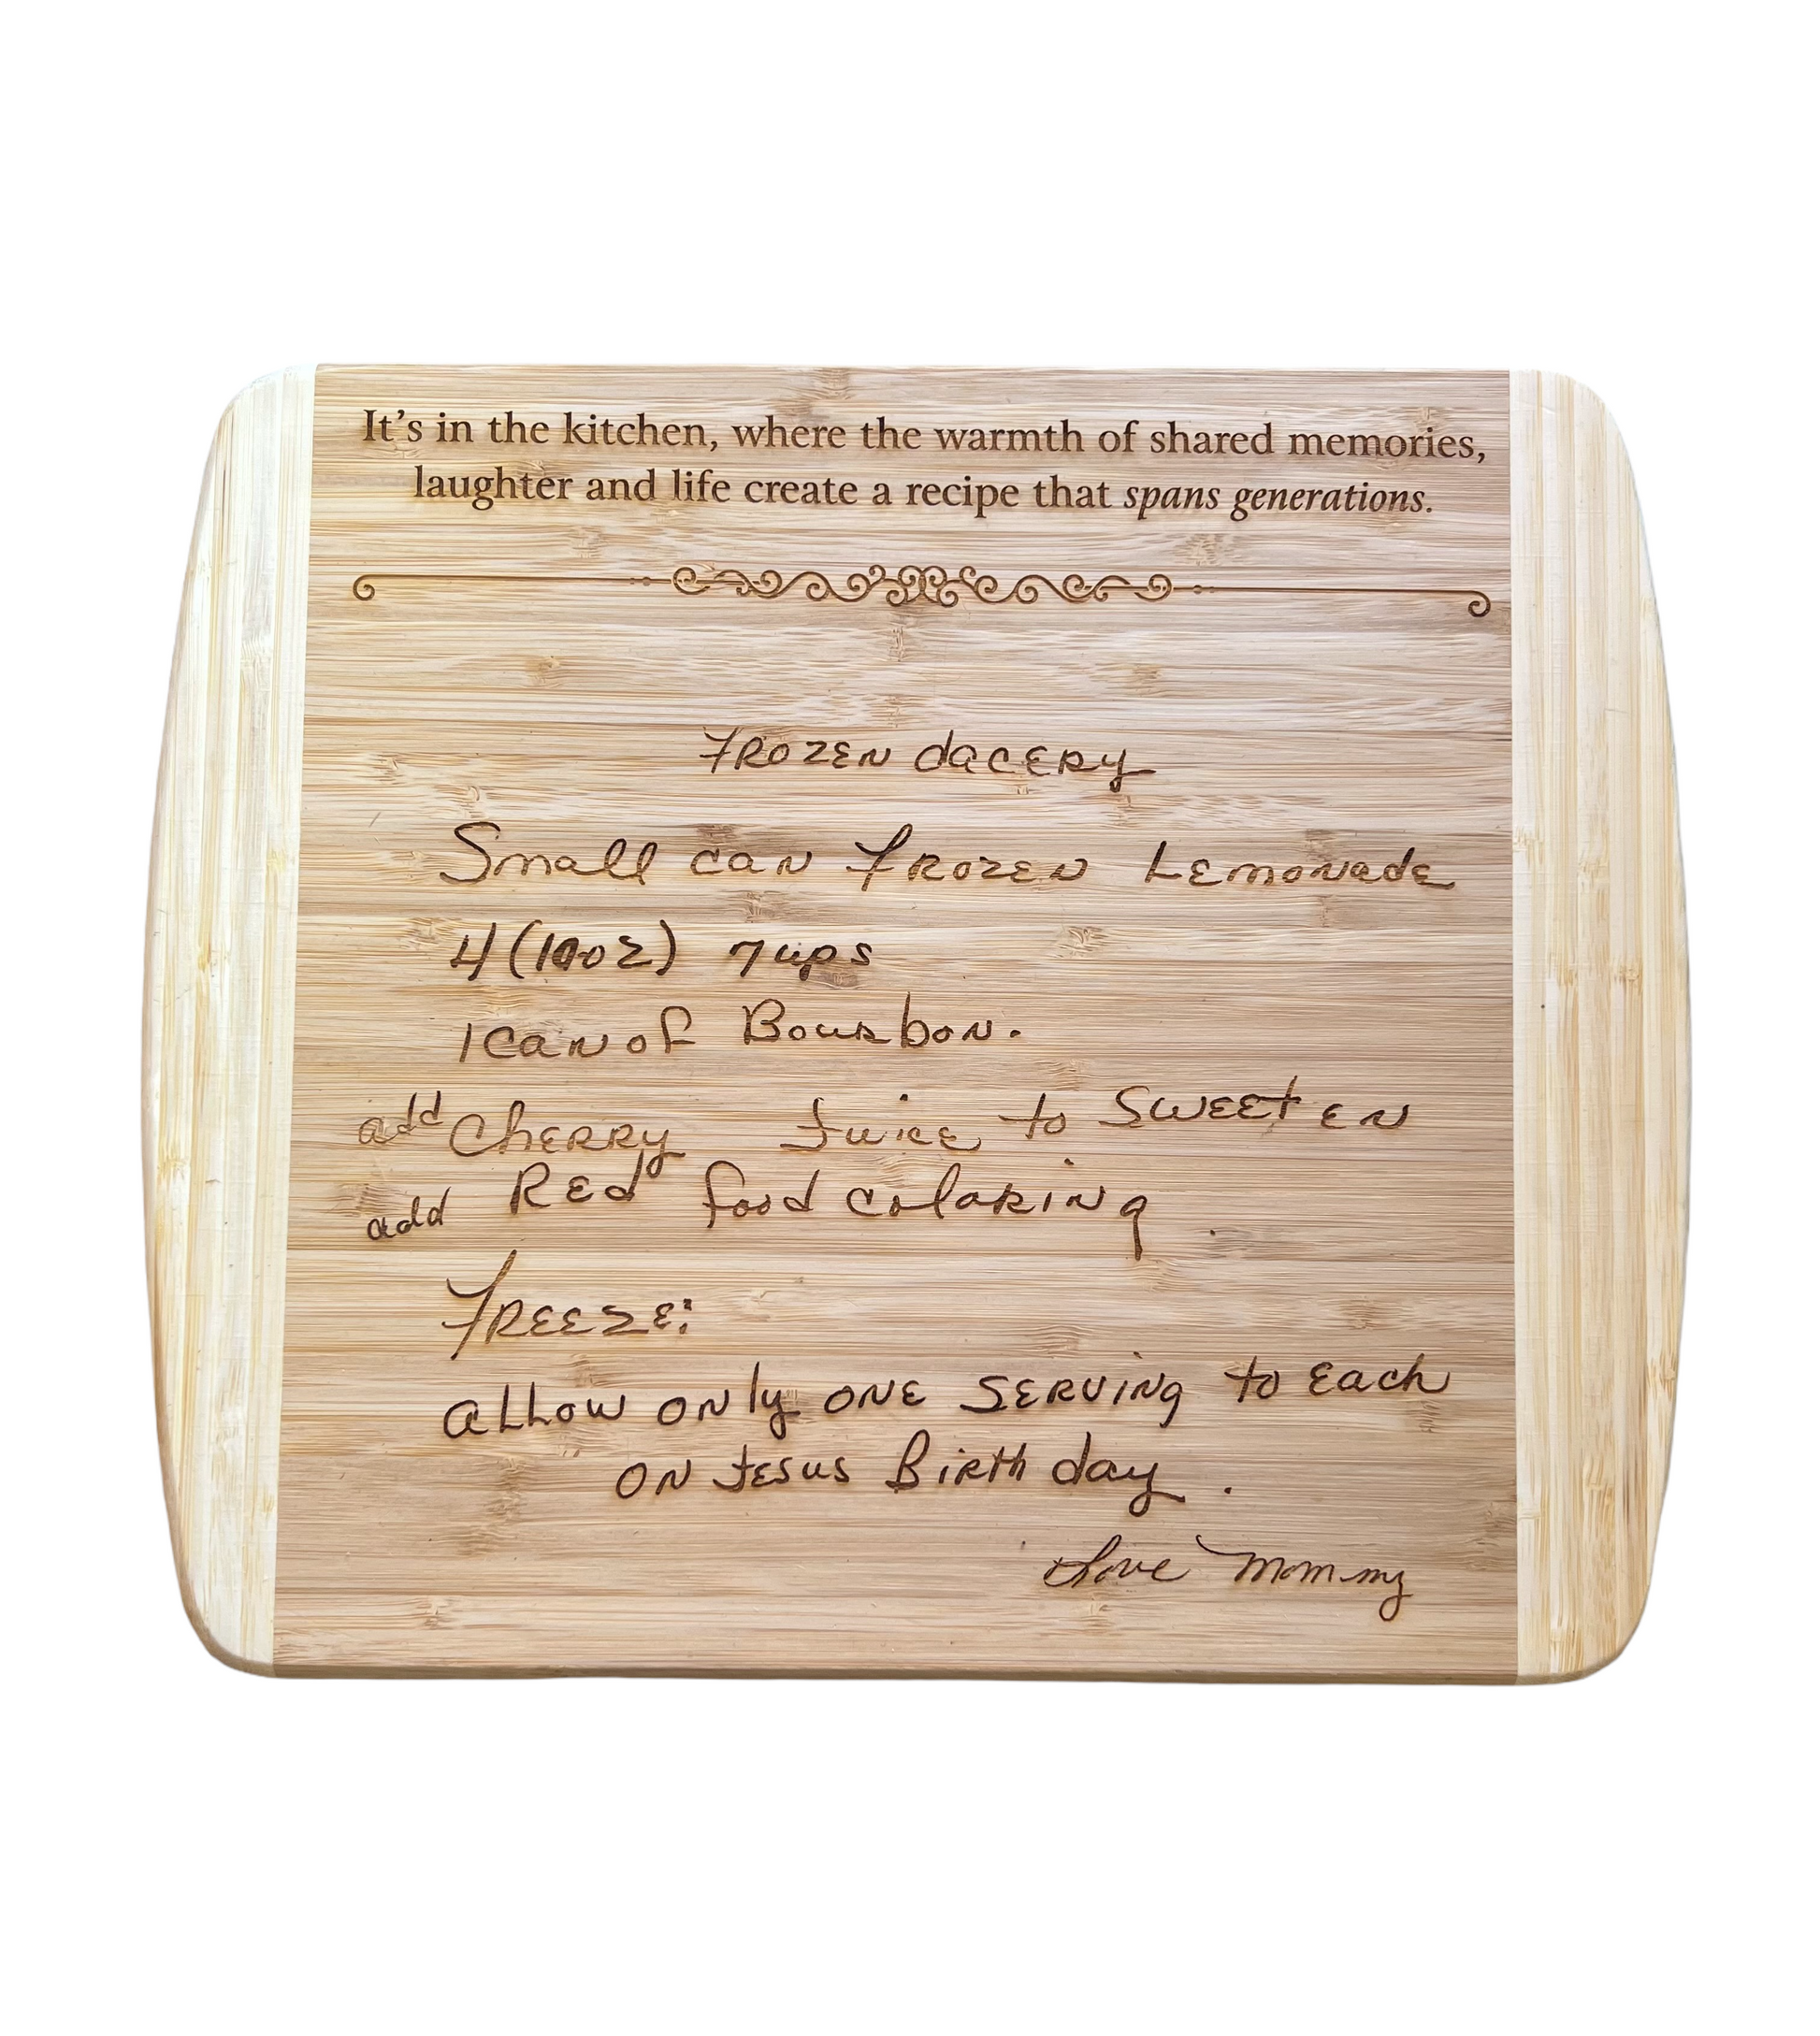 It's in the kitchen, where the warmth of shared memories,
laughter and life create a recipe that spans generations.
FROZEN dacERy
Small can FROZEN LEmonade
4 (10oz) 7ups
1 can of Bourbon.
add ChERRy Juice to SWEETEN
add Red food coloring
FREEZE:
aLLow only ONE SERVING to Each
ON JESUS BiRth day.
Love Mommy